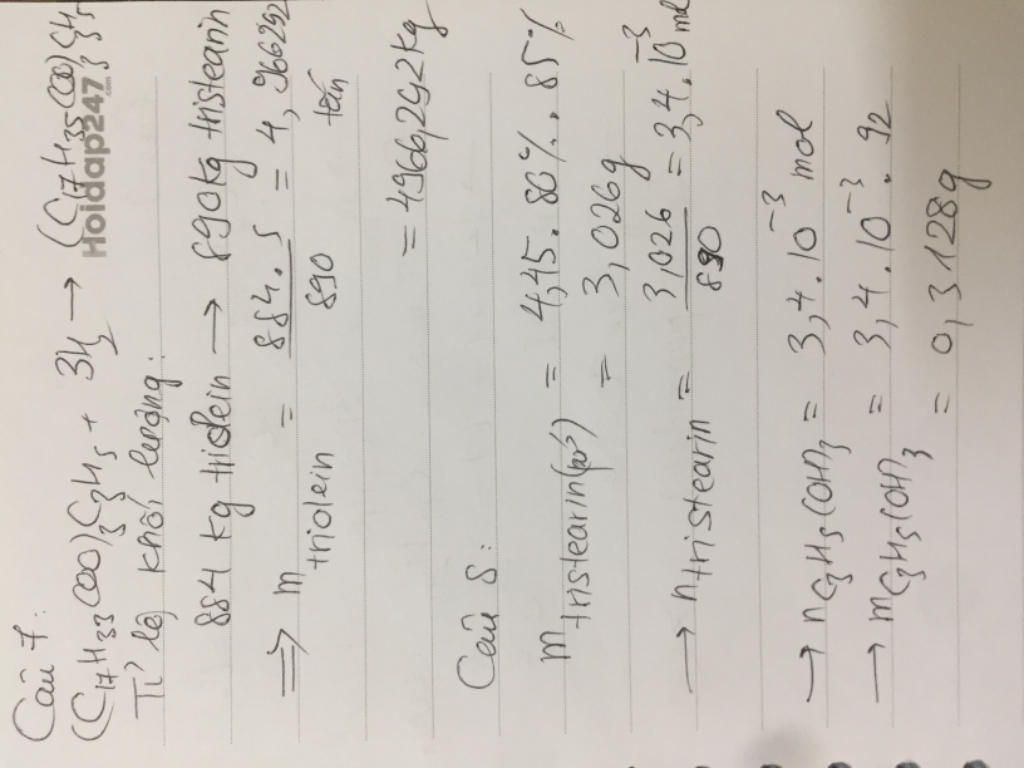 Câu 7:
(C17H33COO)3C3H5 + 3H2 → (C17H35COO)3C3H5
Hoidap247.com
Tỉ lệ khối lượng:
884 kg triolein → 890kg tristearin
⇒ m triolein = 884.5/890 = 4,966292 tấn
= 4966,292kg
Câu 8:
m tristearin(pứ) = 4,45.80%.85%
= 3,026g
→ n tristearin = 3,026/890 = 3,4.10^-3 mol
→ nC3H5(OH)3 = 3,4.10^-3 mol
→ mC3H5(OH)3 = 3,4.10^-3.92
= 0,3128g